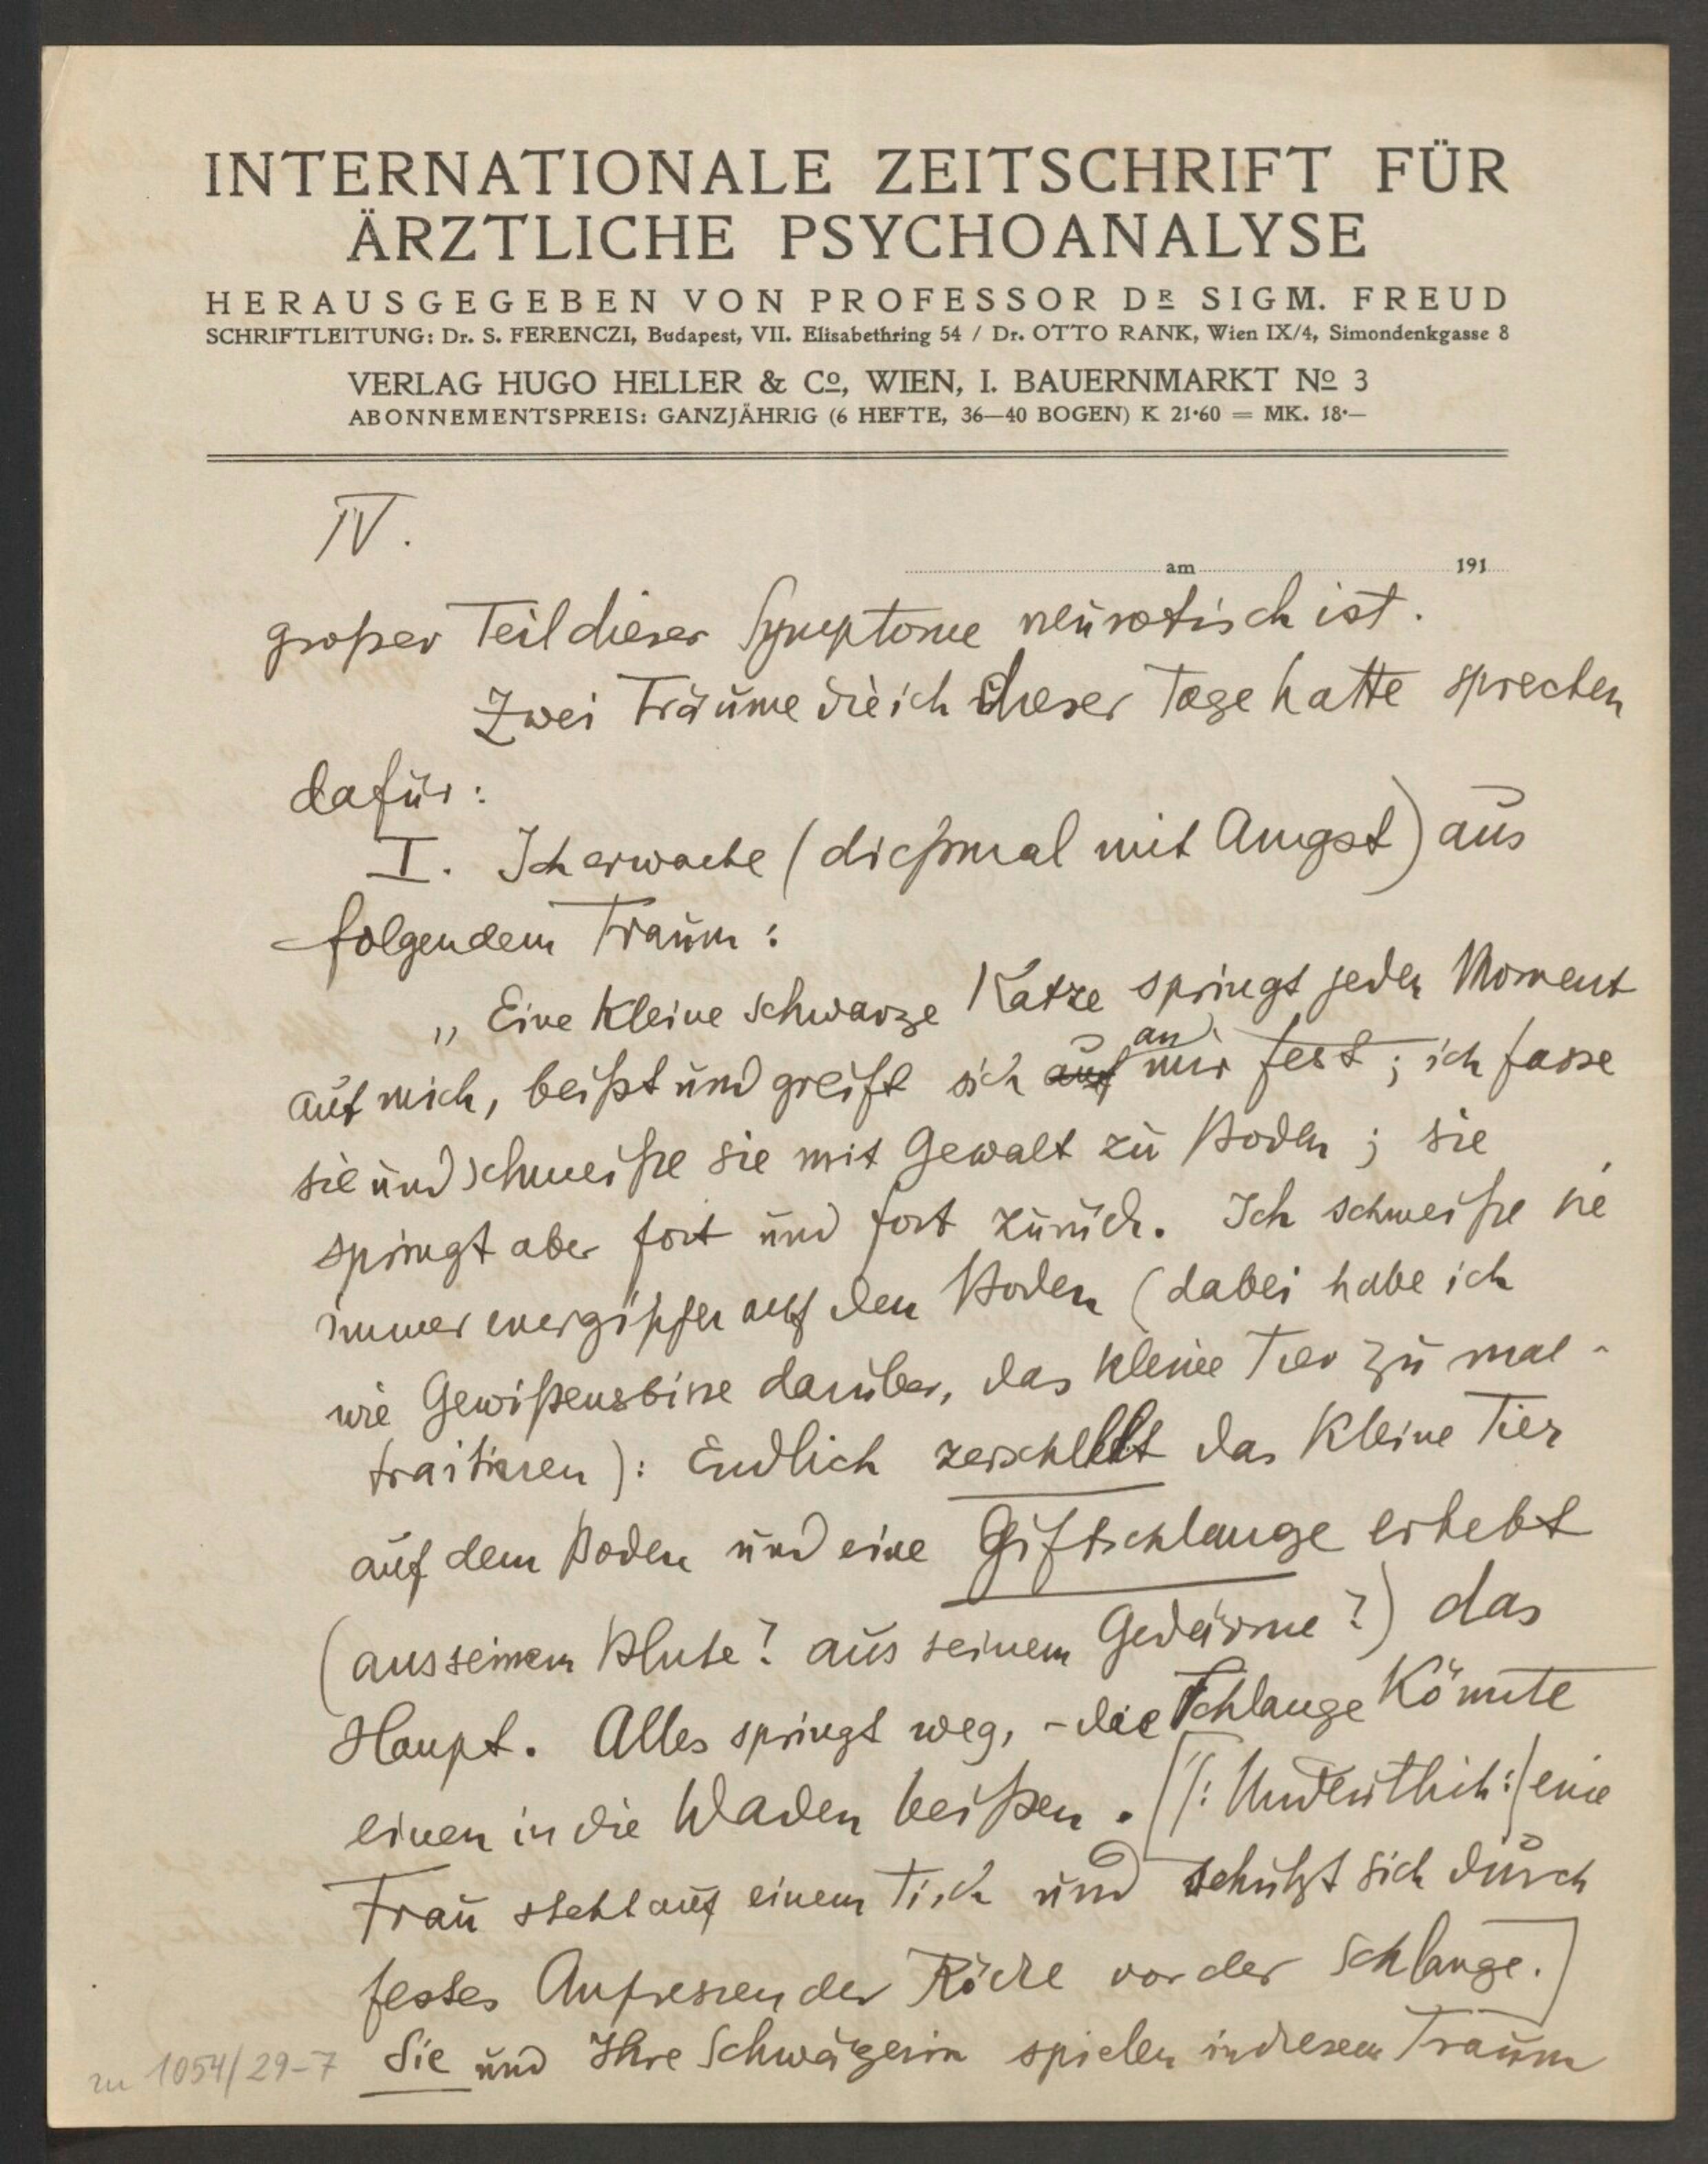 INTERNATIONALE ZEITSCHRIFT FÜR
ÄRZTLICHE PSYCHOANALYSE
HERAUSGEGEBEN VON PROFESSOR DR SIGM. FREUD
SCHRIFTLEITUNG: Dr. S. FERENCZI, Budapest, VII. Elisabethring 54 / Dr. OTTO RANK, Wien IX/4, Simondenkgasse 8
VERLAG HUGO HELLER & Co, WIEN, I. BAUERNMARKT No 3
ABONNEMENTSPREIS: GANZJÄHRIG (6 HEFTE, 36—40 BOGEN) K 21·60 = MK. 18·—
IV.
am 191
großer Teil dieser Symptome neurotisch ist.
Zwei Träume die ich dieser Tage hatte sprechen
dafür:
I. Ich erwache (dießmal mit Angst) aus
folgendem Traum:
„Eine kleine schwarze Katze springt jeden Moment
auf mich, beißt und greift sich auf an mir fest; ich fasse
sie und schmeiße sie mit Gewalt zu Boden; sie
springt aber fort und fort zurück. Ich schmeiße sie
immer energischer auf den Boden (dabei habe ich
wie Gewißensbisse darüber, das kleine Tier zu mal-
traitiren): Endlich zerschellt das kleine Tier
auf dem Boden und eine Giftschlange erhebt
(aus seinem Blute? aus seinem Gedärme?) das
Haupt. Alles springt weg, – die Schlange könnte
einen in die Waden beißen. [(: Undeutlich:) eine
Frau steht auf einem Tisch und schützt sich durch
festes Anpressen der Röcke vor der Schlange.]
Sie und Ihre Schwägerin spielen in diesem Traum
zu 1054/29-7